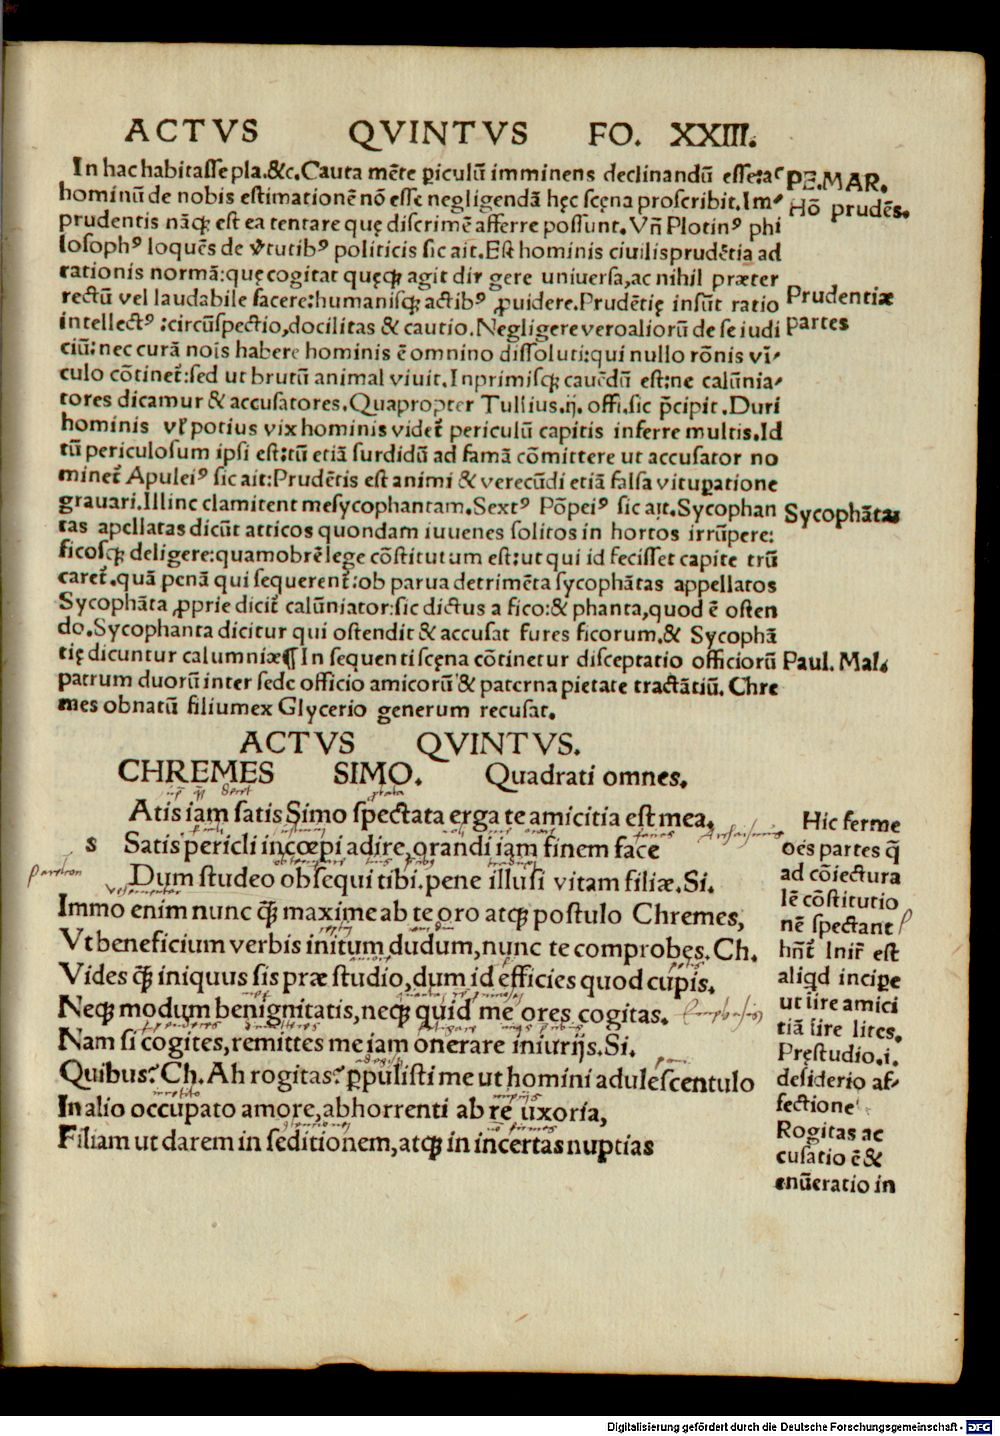 ACTVS QVINTVS FO. XXIII.
In hac habitasse pla.&c. Cauta mẽte ꝑiculũ imminens declinandũ esse:ac
hominũ de nobis estimationẽ nõ esse negligendã hęc scęna proscribit. Im⸗
prudentis nãq; est ea tentare quę discrimẽ afferre possunt. Vñ Plotinꝰ phi
losophꝰ loquẽs de v̓tutibꝰ politicis sic ait. Est hominis ciuilis prudẽtia ad
rationis normã: quę cogitat quęq; agit dir gere vniuersa, ac nihil præter
rectũ vel laudabile facere: humanisq; actibꝰ ꝓuidere. Prudẽtię insũt ratio
intellectꝰ: circũspectio, docilitas & cautio. Negligere vero aliorũ de se iudi
ciũ: nec curã nois habere hominis ẽ omnino dissoluti: qui nullo rõnis vĩ⸗
culo cõtinet̃: sed ut brutũ animal viuit. Inprimisq; cauẽdũ est: ne calũnia⸗
tores dicamur & accusatores. Quapropter Tullius. ij. offi. sic p̃cipit. Duri
hominis vl̓ potius vix hominis videt̃ periculũ capitis inferre multis. Id
tũ periculosum ipsi est: tũ etiã surdidũ ad famã cõmittere ut accusator no
minet̃ Apuleiꝰ sic ait: Prudẽtis est animi & verecũdi etiã falsa vituꝑatione
grauari. Illinc clamitent me sycophantam. Sextꝰ Põpeiꝰ sic ait. Sycophan
tas apellatas dicũt atticos quondam iuuenes solitos in hortos irrũpere:
ficosq; deligere: quamobrẽ lege cõstitutum est: ut qui id fecisset capite trũ
caret̃. quã penã qui sequerent̃: ob parua detrimẽta sycophãtas appellatos
Sycophãta ꝓprie dicit̃ calũniator: sic dictus a fico: & phanta, quod ẽ osten
do. Sycophanta dicitur qui ostendit & accusat fures ficorum. & Sycophã
tię dicuntur calumniæ ¶ In sequenti scęna cõtinetur disceptatio officiorũ
patrum duorũ inter se de officio amicorũ & paterna pietate tractãtiũ. Chre
mes obnatũ filium ex Glycerio generum recusat.
PE. MAR.
Hõ prudẽs.
Prudentiæ
partes
Sycophãtas
Paul. Mal.
ACTVS QVINTVS.
CHREMES SIMO. Quadrati omnes.
Atis iam satis Simo spectata erga te amicitia est mea.
s Satis pericli incœpi adire, orandi iam finem face
Dum studeo obsequi tibi. pene illusi vitam filiæ. Si.
Immo enim nunc q̃ maxime ab te oro atq; postulo Chremes,
Vt beneficium verbis initum dudum, nunc te comprobes. Ch.
Vides q̃ iniquus sis præ studio, dum id efficies quod cupis.
Neq; modum benignitatis, neq; quid me ores cogitas.
Nam si cogites, remittes me iam onerare iniurijs. Si.
Quibus? Ch. Ah rogitas? ꝑpulisti me ut homini adulescentulo
In alio occupato amore, abhorrenti ab re uxoria,
Filiam ut darem in seditionem, atq; in incertas nuptias
Hic ferme
oẽs partes q̃
ad cõiectura
lẽ cõstitutio
nẽ spectant
hñt̃ Inir̃ est
aliqd incipe
ut iire amici
tiã iire lites.
Pręstudio. i.
desiderio af⸗
fectione
Rogitas ac
cusatio ẽ &
enũeratio in
Archaismus
parelcon
vehementer
Emphasis
Digitalisierung gefördert durch die Deutsche Forschungsgemeinschaft - DFG